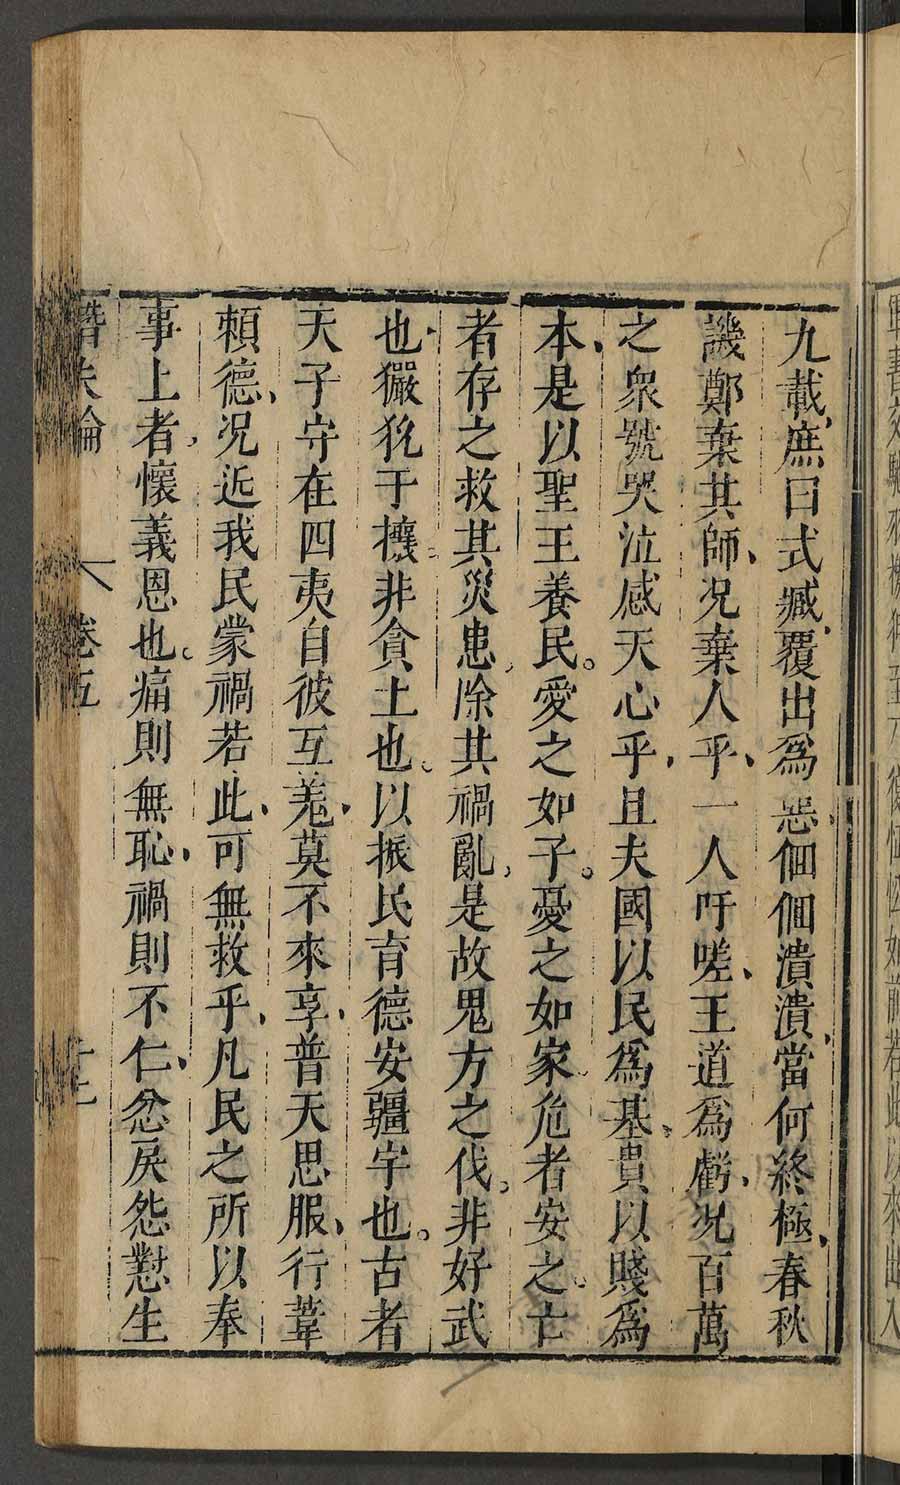 九載庶曰式臧覆出為惡佪佪潰潰當何終極春秋
譏鄭棄其師况棄人乎一人吁嗟王道為虧况百萬
之衆號哭泣感天心乎且夫國以民為基貴以賤為
本是以聖王養民愛之如子憂之如家危者安之亡
者存之救其災患除其禍亂是故鬼方之伐非好武
也玁狁于攘非貪土也以振民育德安疆宇也古者
天子守在四夷自彼互羗莫不來享普天思服行葦
頼德况近我民蒙禍若此可無救乎凡民之所以奉
事上者懷義恩也痛則無恥禍則不仁忿戾怨懟生
潛夫論 卷五